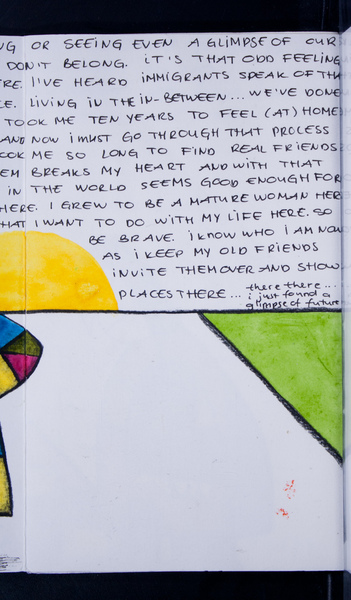 NG OR SEEING EVEN A GLIMPSE OF OUR
DON'T BELONG. IT'S THAT ODD FEELING
RE. I'VE HEARD IMMIGRANTS SPEAK OF THA
CE. LIVING IN THE IN-BETWEEN... WE'VE DONE
TOOK ME TEN YEARS TO FEEL (AT) HOME
AND NOW I MUST GO THROUGH THAT PROCESS
OOK ME SO LONG TO FIND REAL FRIENDS
EM BREAKS MY HEART AND WITH THAT
IN THE WORLD SEEMS GOOD ENOUGH FOR
HERE. I GREW TO BE A MATURE WOMAN HERE
HAT I WANT TO DO WITH MY LIFE HERE. SO
BE BRAVE. I KNOW WHO I AM NOW
AS I KEEP MY OLD FRIENDS
INVITE THEM OVER AND SHOW
PLACES THERE... there there...
i just found a
glimpse of future